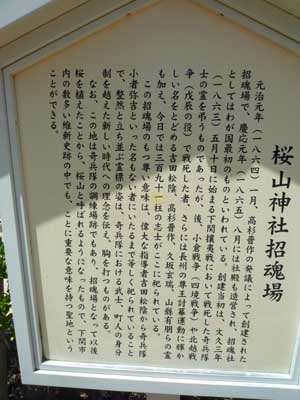 桜山神社招魂場
元治元年（一八六四）一月、高杉晋作の発議によって創建された
招魂場で、慶応元年（一八六五）八月には社殿も造営され、招魂社
としてはわが国最初のものといわれている。創建当初は、文久三年
（一八六三）五月十日に始まる下関攘夷戦において戦死した奇兵隊
士の霊を弔うものであったが、後、小倉戦争（四境戦争）や北越戦
争（戊辰の役）で戦死した者、さらには長州の尊王討幕運動に輝か
しい名をとどめる吉田松陰、高杉晋作、久坂玄瑞、山県有朋らの霊
も加え、今日では三百九十一柱の志士がここに祀られている。
この招魂場のもつ尊い意味は、偉大な指導者吉田松陰から奇兵隊
小者弥吉といった名もない者にいたるまで等しく祀られていること
で、整然と立ち並ぶ霊標の姿は、奇兵隊における武士、町人の身分
制を越えた新しい時代への理念を伝え、胸を打つものがある。
なお、この地は奇兵隊の調練場跡でもあり、招魂場となって以後
桜を植えたことから、桜山と呼ばれるようになったもので、下関市
内の数多い維新史跡の中でも、ことに重要な意味を持つ聖地という
ことができる。